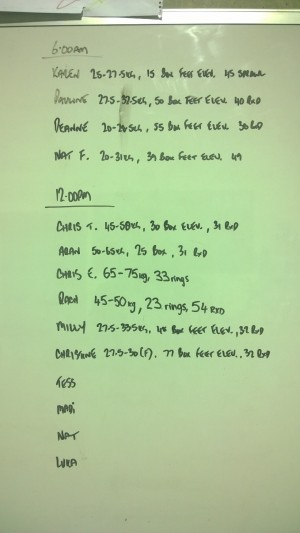 6:00AM
KAREN 25-27.5KG, 15 BOX FEET ELEV. 45 SPRAWL
PAULINE 27.5-32.5KG, 50 BOX FEET ELEV 40 RXD
DEANNE 20-22.5KG, 55 BOX FEET ELEV. 36 RXD
NAT F. 20-31KG, 39 BOX FEET ELEV. 49
12:00PM
CHRIS T. 45-50KG, 30 BOX ELEV., 31 RXD
ARAN 50-65KG, 25 BOX, 31 RXD
CHRIS E. 65-75kg, 33 rings
45-50kg, 23 rings, 54 RXD
MILLY 27.5-33.5KG, 42 BOX FEET ELEV., 32 RXD
CHRISTINE 27.5-30(F). 77 BOX FEET ELEV., 32 RXD
TESS
MADI
NAT
LUKA